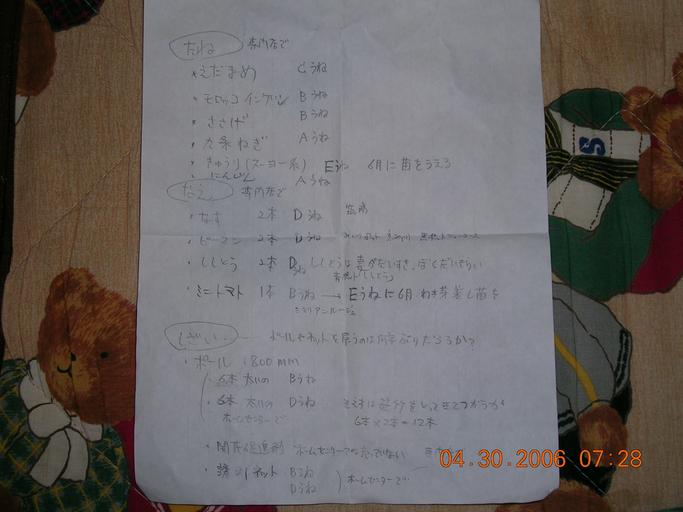 たね 専門店で
・えだまめ Cうね
・モロッコインゲン Bうね
・ささげ Bうね
・九条ねぎ Aうね
・きゅうり(スーヨー系) Eうね 6月に苗をうえる
・にんじん Aうね
なえ 専門店で
・なす 2本 Dうね
・ピーマン 2本 Dうね
・ししとう 2本 Dうね ししとうは妻がだいすき、ぼくだいきらい
・ミニトマト 1本 Bうね → Eうねに6月 わき芽差し苗を
ミリアンルージュ
しざい ポールやネットを買うのは何年ぶりだろうか?
・ポール 1800mm
・6本 太いの Bうね
・6本 太いの Dうね
ホームセンターで 6本×2本=12本
・開花促進剤 ホームセンター
・ネット Bうね
Dうね ホームセンターで
S
04.30.2006 07:28